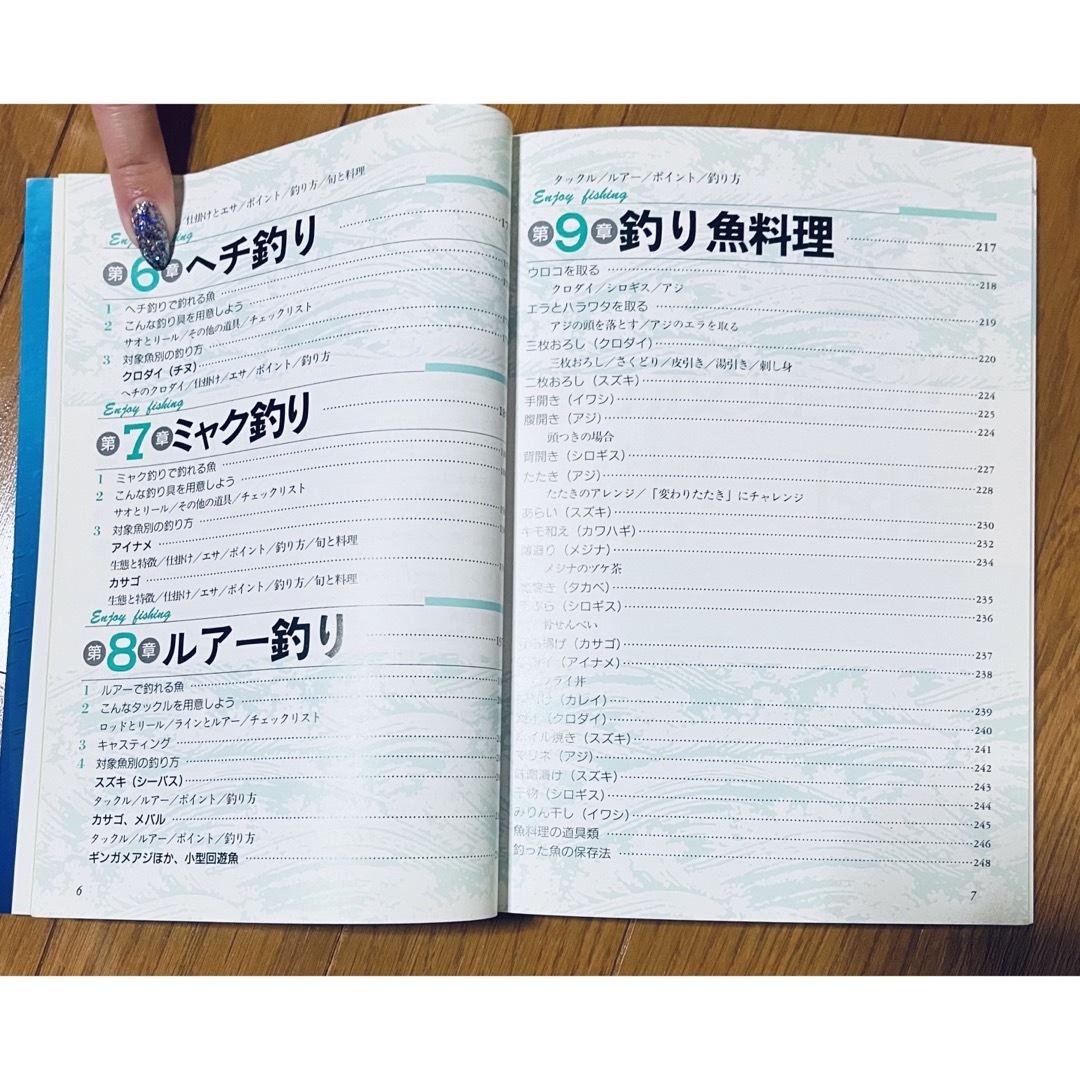 仕掛けとエサ／ポイント／釣り方／旬と料理
Enjoy fishing
第6章ヘチ釣り
1 ヘチ釣りで釣れる魚
2 こんな釣り具を用意しよう
サオとリール／その他の道具／チェックリスト
3 対象魚別の釣り方
クロダイ（チヌ）
ヘチのクロダイ／仕掛け／エサ／ポイント／釣り方
Enjoy fishing
第7章ミャク釣り
1 ミャク釣りで釣れる魚
2 こんな釣り具を用意しよう
サオとリール／その他の道具／チェックリスト
3 対象魚別の釣り方
アイナメ
生態と特徴／仕掛け／エサ／ポイント／釣り方／旬と料理
カサゴ
生態と特徴／仕掛け／エサ／ポイント／釣り方／旬と料理
Enjoy fishing
第8章ルアー釣り
1 ルアーで釣れる魚
2 こんなタックルを用意しよう
ロッドとリール／ラインとルアー／チェックリスト
3 キャスティング
4 対象魚別の釣り方
スズキ（シーバス）
タックル／ルアー／ポイント／釣り方
カサゴ、メバル
タックル／ルアー／ポイント／釣り方
ギンガメアジほか、小型回遊魚
6
タックル／ルアー／ポイント／釣り方
Enjoy fishing
第9章釣り魚料理 217
ウロコを取る 218
クロダイ／シロギス／アジ
エラとハラワタを取る 219
アジの頭を落とす／アジのエラを取る
三枚おろし（クロダイ） 220
三枚おろし／さくどり／皮引き／湯引き／刺し身
二枚おろし（スズキ） 224
手開き（イワシ） 225
腹開き（アジ） 224
頭つきの場合
背開き（シロギス） 227
たたき（アジ） 228
たたきのアレンジ／「変わりたたき」にチャレンジ
あらい（スズキ） 230
キモ和え（カワハギ） 232
薄造り（メジナ） 234
メジナのヅケ茶
塩焼き（タカベ） 235
（シロギス） 236
骨せんべい
揚げ（カサゴ） 237
（アイナメ） 238
フライ丼
（カレイ） 239
（クロダイ） 240
ホイル焼き（スズキ） 241
マリネ（アジ） 242
漬け（スズキ） 243
干物（シロギス） 244
みりん干し（イワシ） 245
魚料理の道具類 246
釣った魚の保存法 248
7